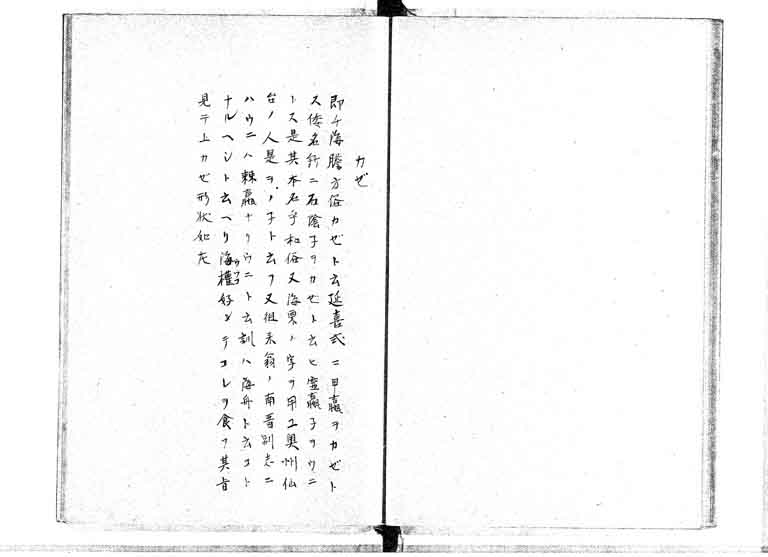 カゼ
即チ海膽方俗カゼト云延喜式ニ甲蠃ヲカゼト
ス倭名鈔ニ石陰子ヲカセト云ヒ霊蠃子ヲウニ
トス是其本名乎和俗又海栗ノ字ヲ用ユ奥州仙
台ノ人是ヲノ子ト云フ又徂来翁ノ南留別志ニ
ハウニハ棘蠃ナリウニト云訓ハ海丹ト云コト
ナルヘシト云ヘリ海獺好ンテコレヲ食フ其旨
見テ上カゼ形状如左